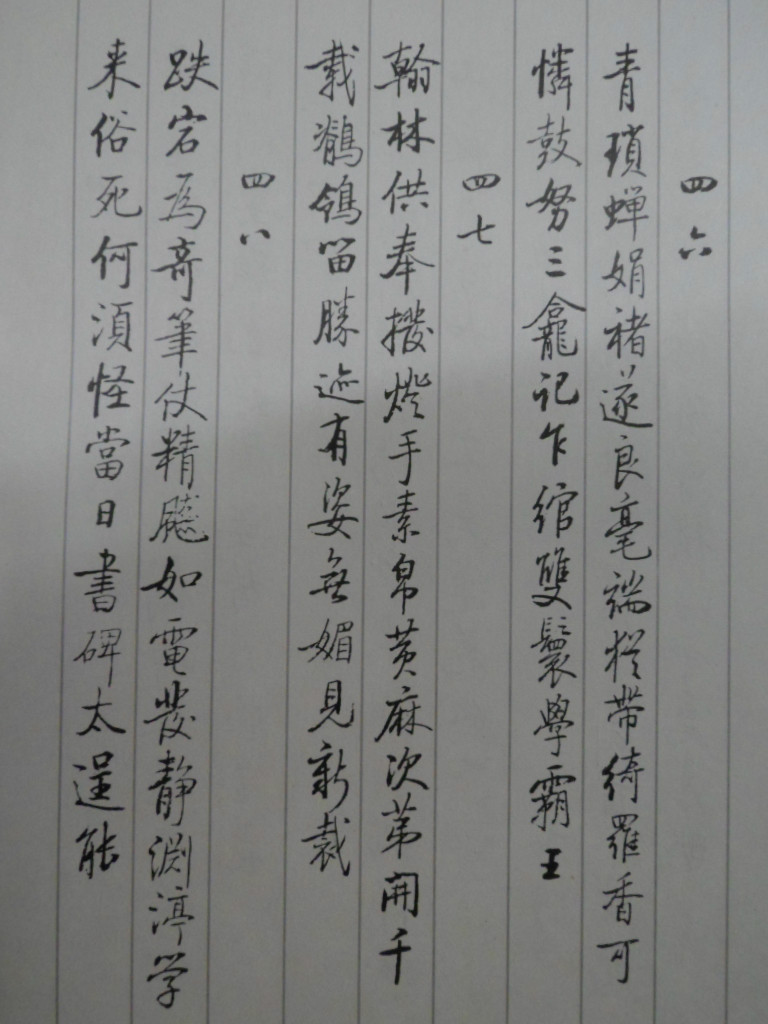 四六
青瑣蟬娟褚遂良毫端猶帶綺羅香可
憐鼓努三龕記乍綰雙鬟學霸王
四七
翰林供奉撥燈手素帛黃麻次第開千
載鶺鴒留勝迹有姿無媚見新裁
四八
跌宕為奇筆仗精飈如電發静淵渟学
来俗死何須怪當日書碑太逞能